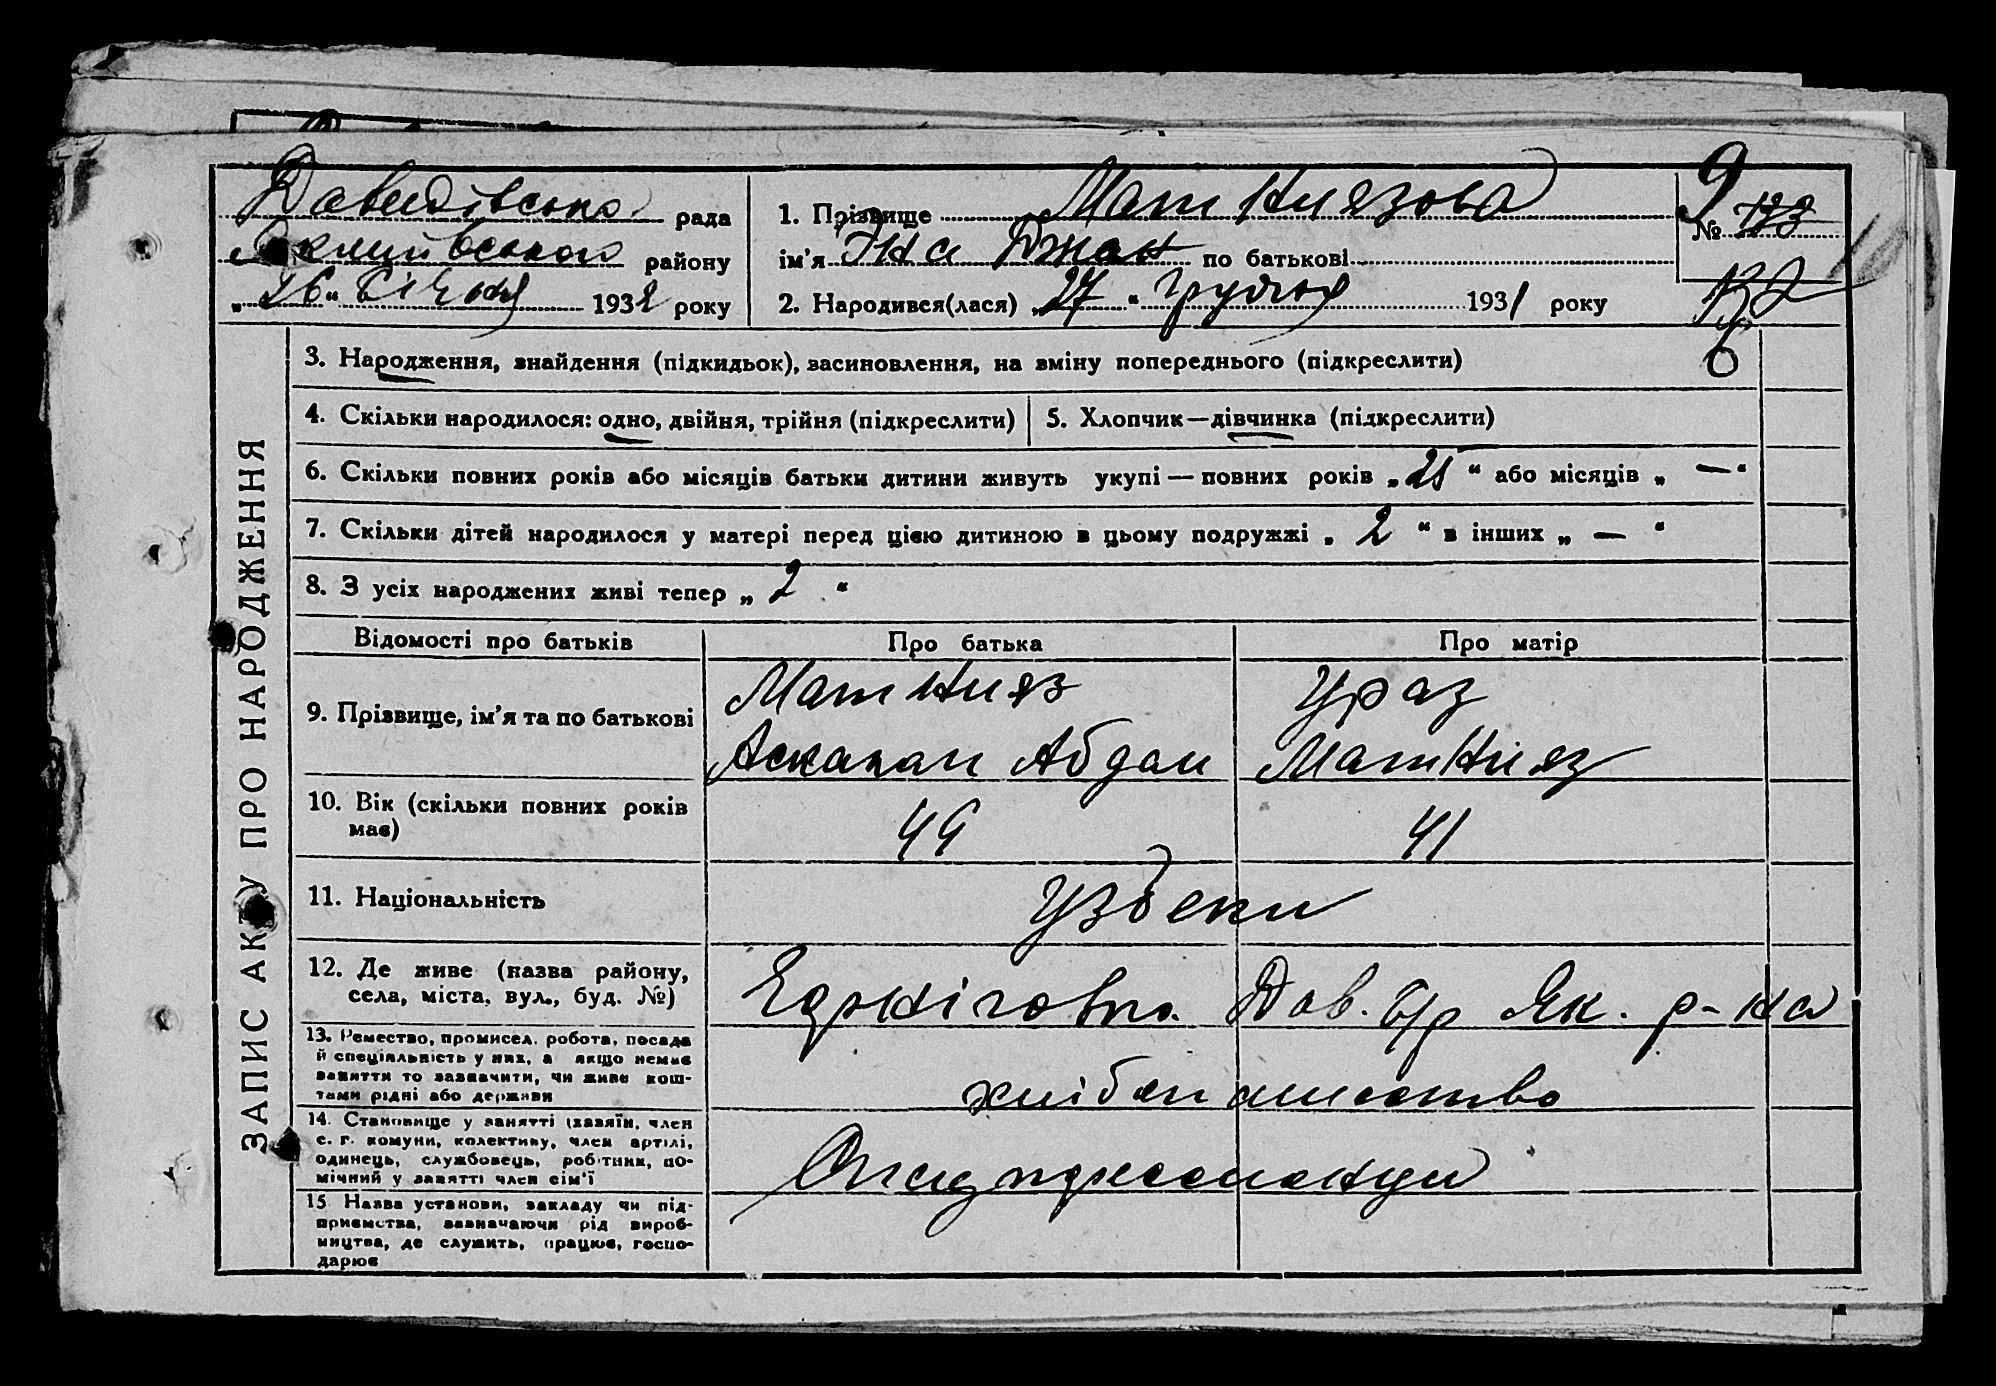 Давидівська рада
Якимівського району
„ 26 “ Січня 1932 року
1. Прізвище Матниязова
ім’я Джан по батькові
2. Народився(лася) „ 27 “ Грудня 1931 року
№ 123
9
3. Народження, знайдення (підкидьок), засиновлення, на зміну попереднього (підкреслити)
4. Скільки народилося: одно, двійня, трійня (підкреслити)
5. Хлопчик — дівчинка (підкреслити)
6. Скільки повних років або місяців батьки дитини живуть укупі — повних років „ 25 “ або місяців „ — “
7. Скільки дітей народилося у матері перед цією дитиною в цьому подружжі „ 2 “ в інших „ — “
8. З усіх народжених живі тепер „ 2 “
ЗАПИС АКТУ ПРО НАРОДЖЕННЯ
Відомості про батьків
Про батька
Про матір
9. Прізвище, ім’я та по батькові
Матнияз
Абдан
Ураз
Матнияз
10. Вік (скільки повних років
має)
49
41
11. Національність
Узбеки
12. Де живе (назва району,
села, міста, вул., буд. №)
Дав. с/р Як. р-на
13. Ремество, промисел, робота, посада
й спеціяльність у них, а якщо немає
заняття то зазначити, чи живе кош-
тами рідні або держави
хлібопашество
14. Становище у занятті (хазяїн, член
с. г. комуни, колективу, член артілі,
одинець, службовець, робітник, по-
мічний у занятті член сім’ї
15 Назва установи, закладу чи під-
приємства, зазначаючи рід вироб-
ництва, де служить, працює, госпо-
дарює